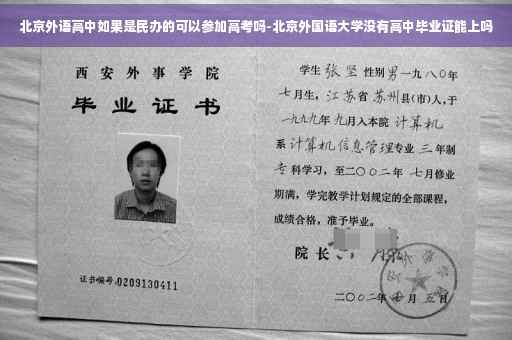 北京外语高中如果是民办的可以参加高考吗-北京外国语大学没有高中毕业证能上吗
西安外事学院
毕业证书
证书编号:0209130411
学生 张坚 性别男一九八〇年
七月生,江苏省苏州县(市)人,于
一九九九年九月入本院 计算机
系计算机信息管理专业 三 年制
专科学习,至二〇〇二年 七月修业
期满,学完教学计划规定的全部课程,
成绩合格,准予毕业。
院长
二〇〇二年 月五日